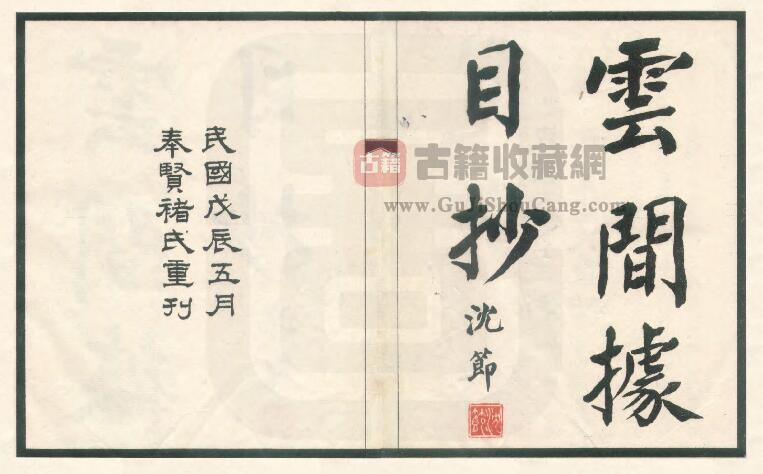 雲間據
目抄
沈節
民國戊辰五月
奉賢褚氏重刋
古籍
古籍收藏網
www.GuJiShouCang.com